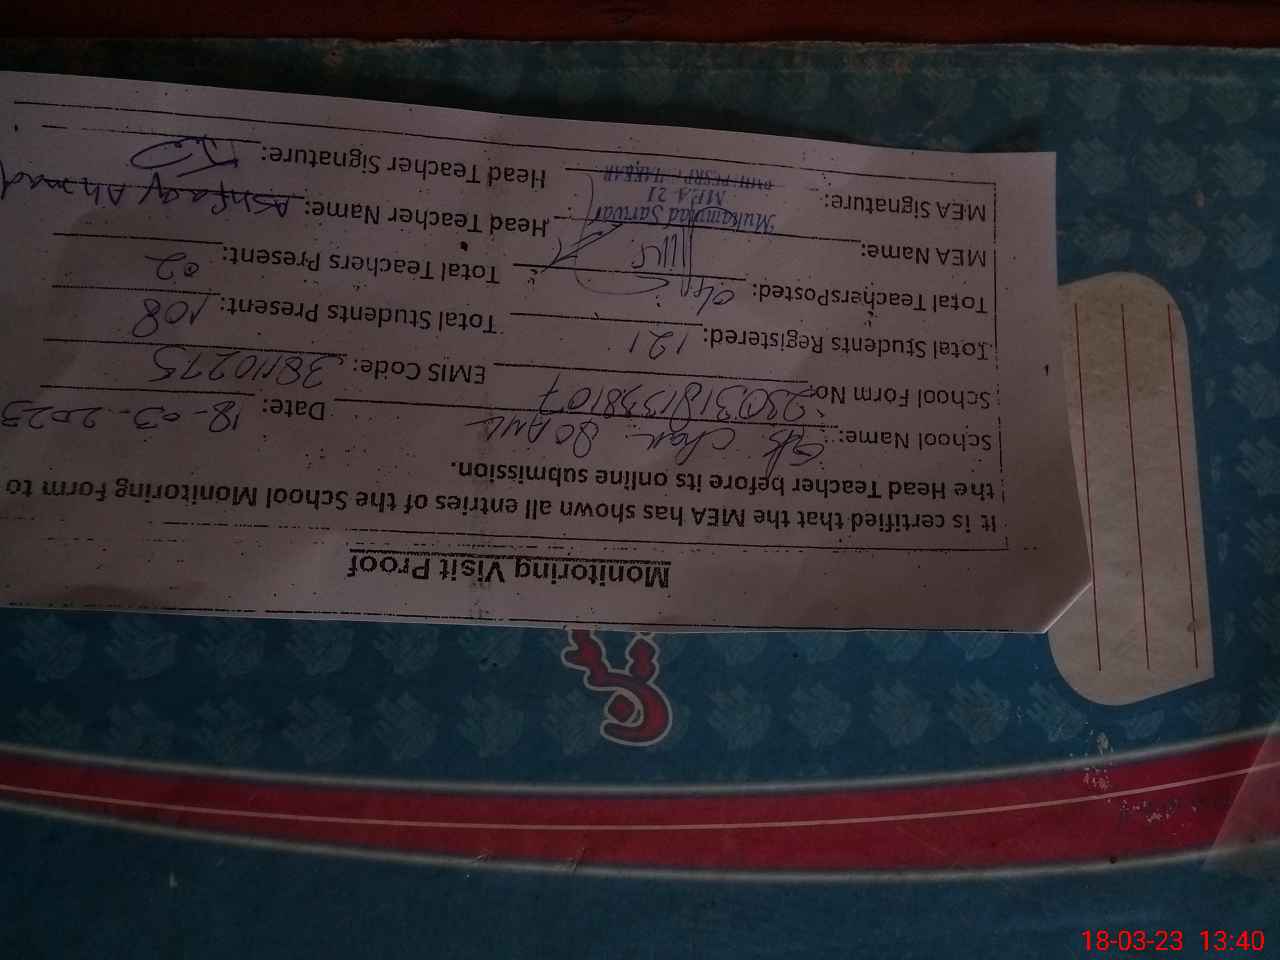 Monitoring Visit Proof
It is certified that the MEA has shown all entries of the School Monitoring Form to
the Head Teacher before its online submission.
School Name: Chak 80 Date: 18-03-2023
School Form No: 2303181338107 EMIS Code: 38110275
Total Students Registered: 121 Total Students Present: 108
Total TeachersPosted: Total Teachers Present: 02
MEA Name: Muhammad Sarwar Head Teacher Name: Ashfaq Ahmad
MEA-21
MEA Signature: Head Teacher Signature:
18-03-23 13:40